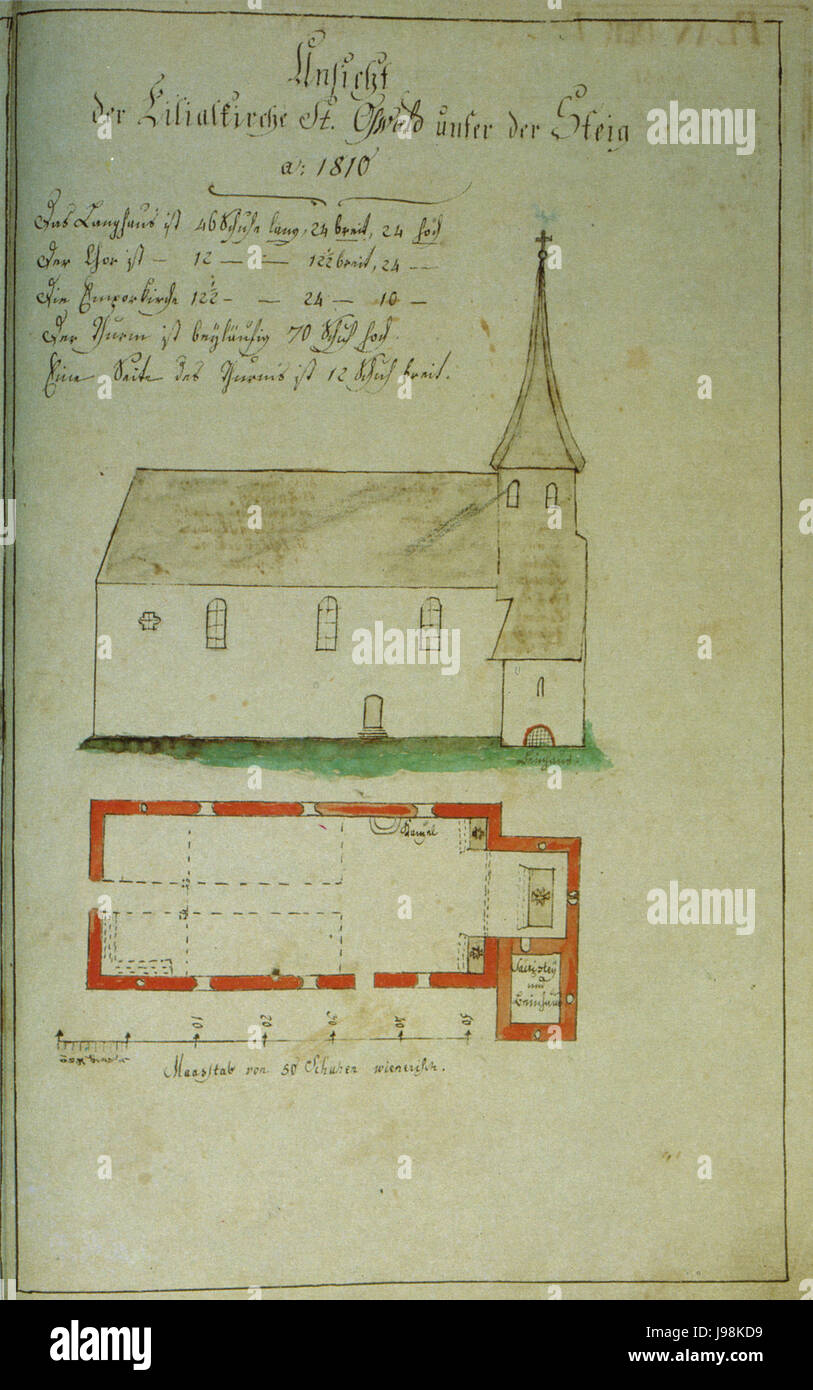 Ansicht
der Filialkirche St. Oswald unter der Steig
a: 1810
Das Langhaus ist 46 Schuhe lang, 24 breit, 24 hoch
Der Chor ist — 12 — — 12½ breit, 24 —
Die Emporkirche 12½ — — 24 — 10 —
Der Thurm ist beyläufig 70 Schuh hoch.
Eine Seite des Thurms ist 12 Schuh breit.
Beinhaus.
Kanzel
Sacristey
und
Beinhaus
10 20 30 40 50
Maasstab von 50 Schuhen wienerisch.
alamy
Image ID: J98KD9
www.alamy.com